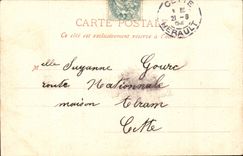 CARTE POSTALE
Ce côté est exclusivement réservé à l'adresse
CETTE
21 -8
HERAULT
Mlle Suzanne Gourc
route Nationale
maison Tram
Cette